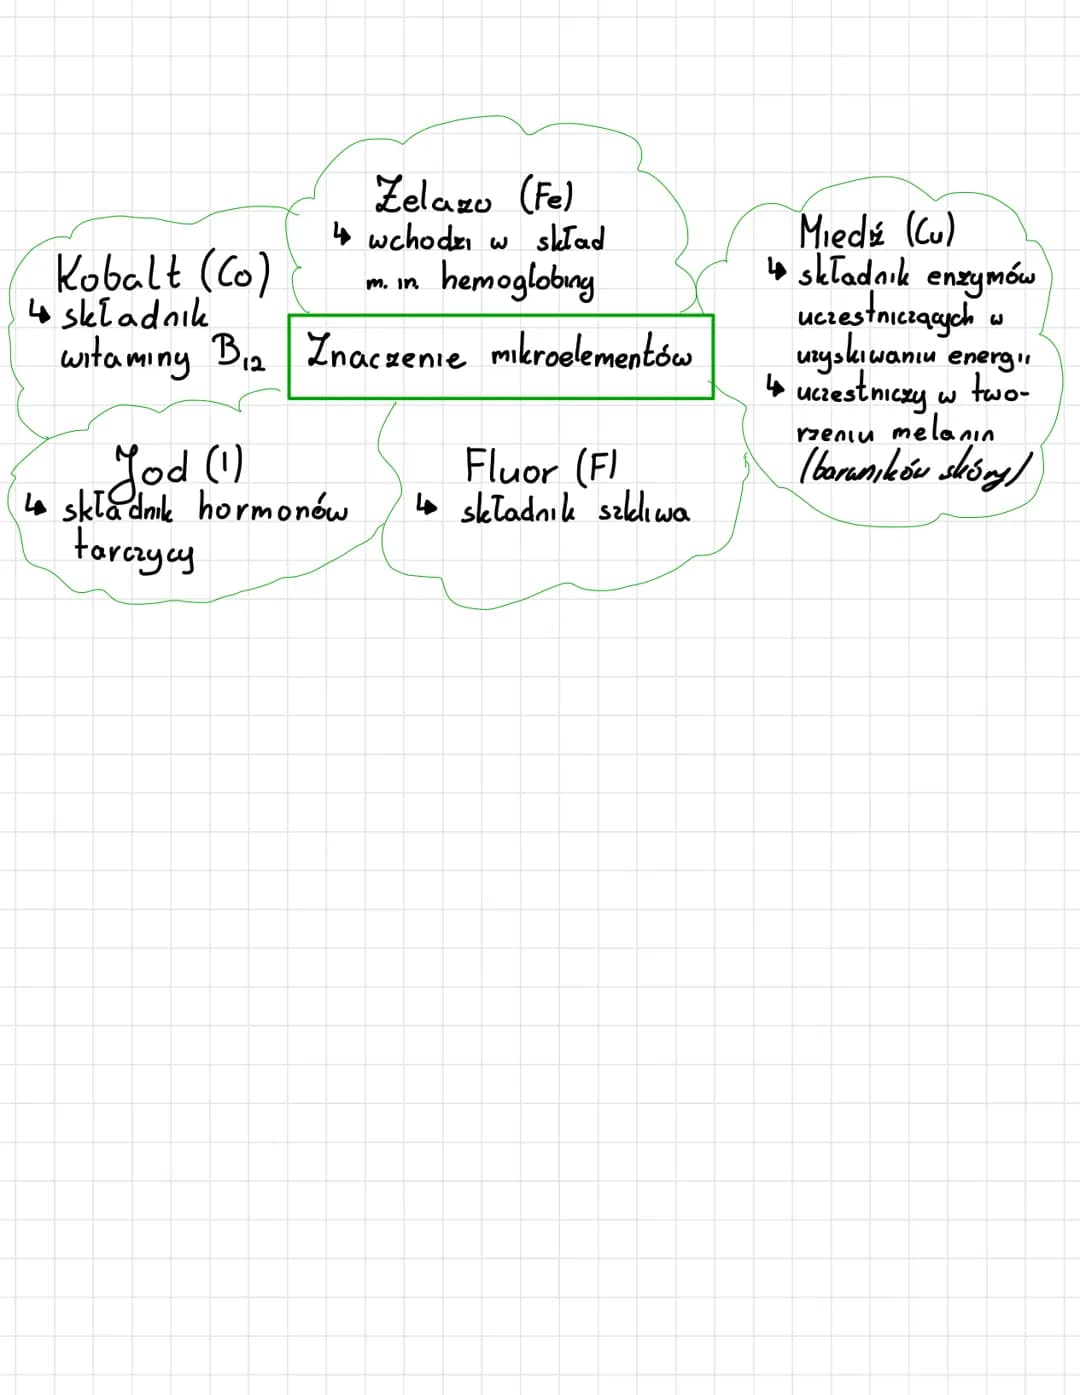 Żelazo (Fe)
↳ wchodzi w skład
m. in. hemoglobiny
Kobalt (Co)
↳ składnik
witaminy B₁₂
Znaczenie mikroelementów
Miedź (Cu)
↳ składnik enzymów
uczestniczących w
uzyskiwaniu energii
↳ uczestniczy w two-
rzeniu melanin
(barwników skóry)
Jod (I)
↳ składnik hormonów
tarczycy
Fluor (F)
↳ składnik szkliwa